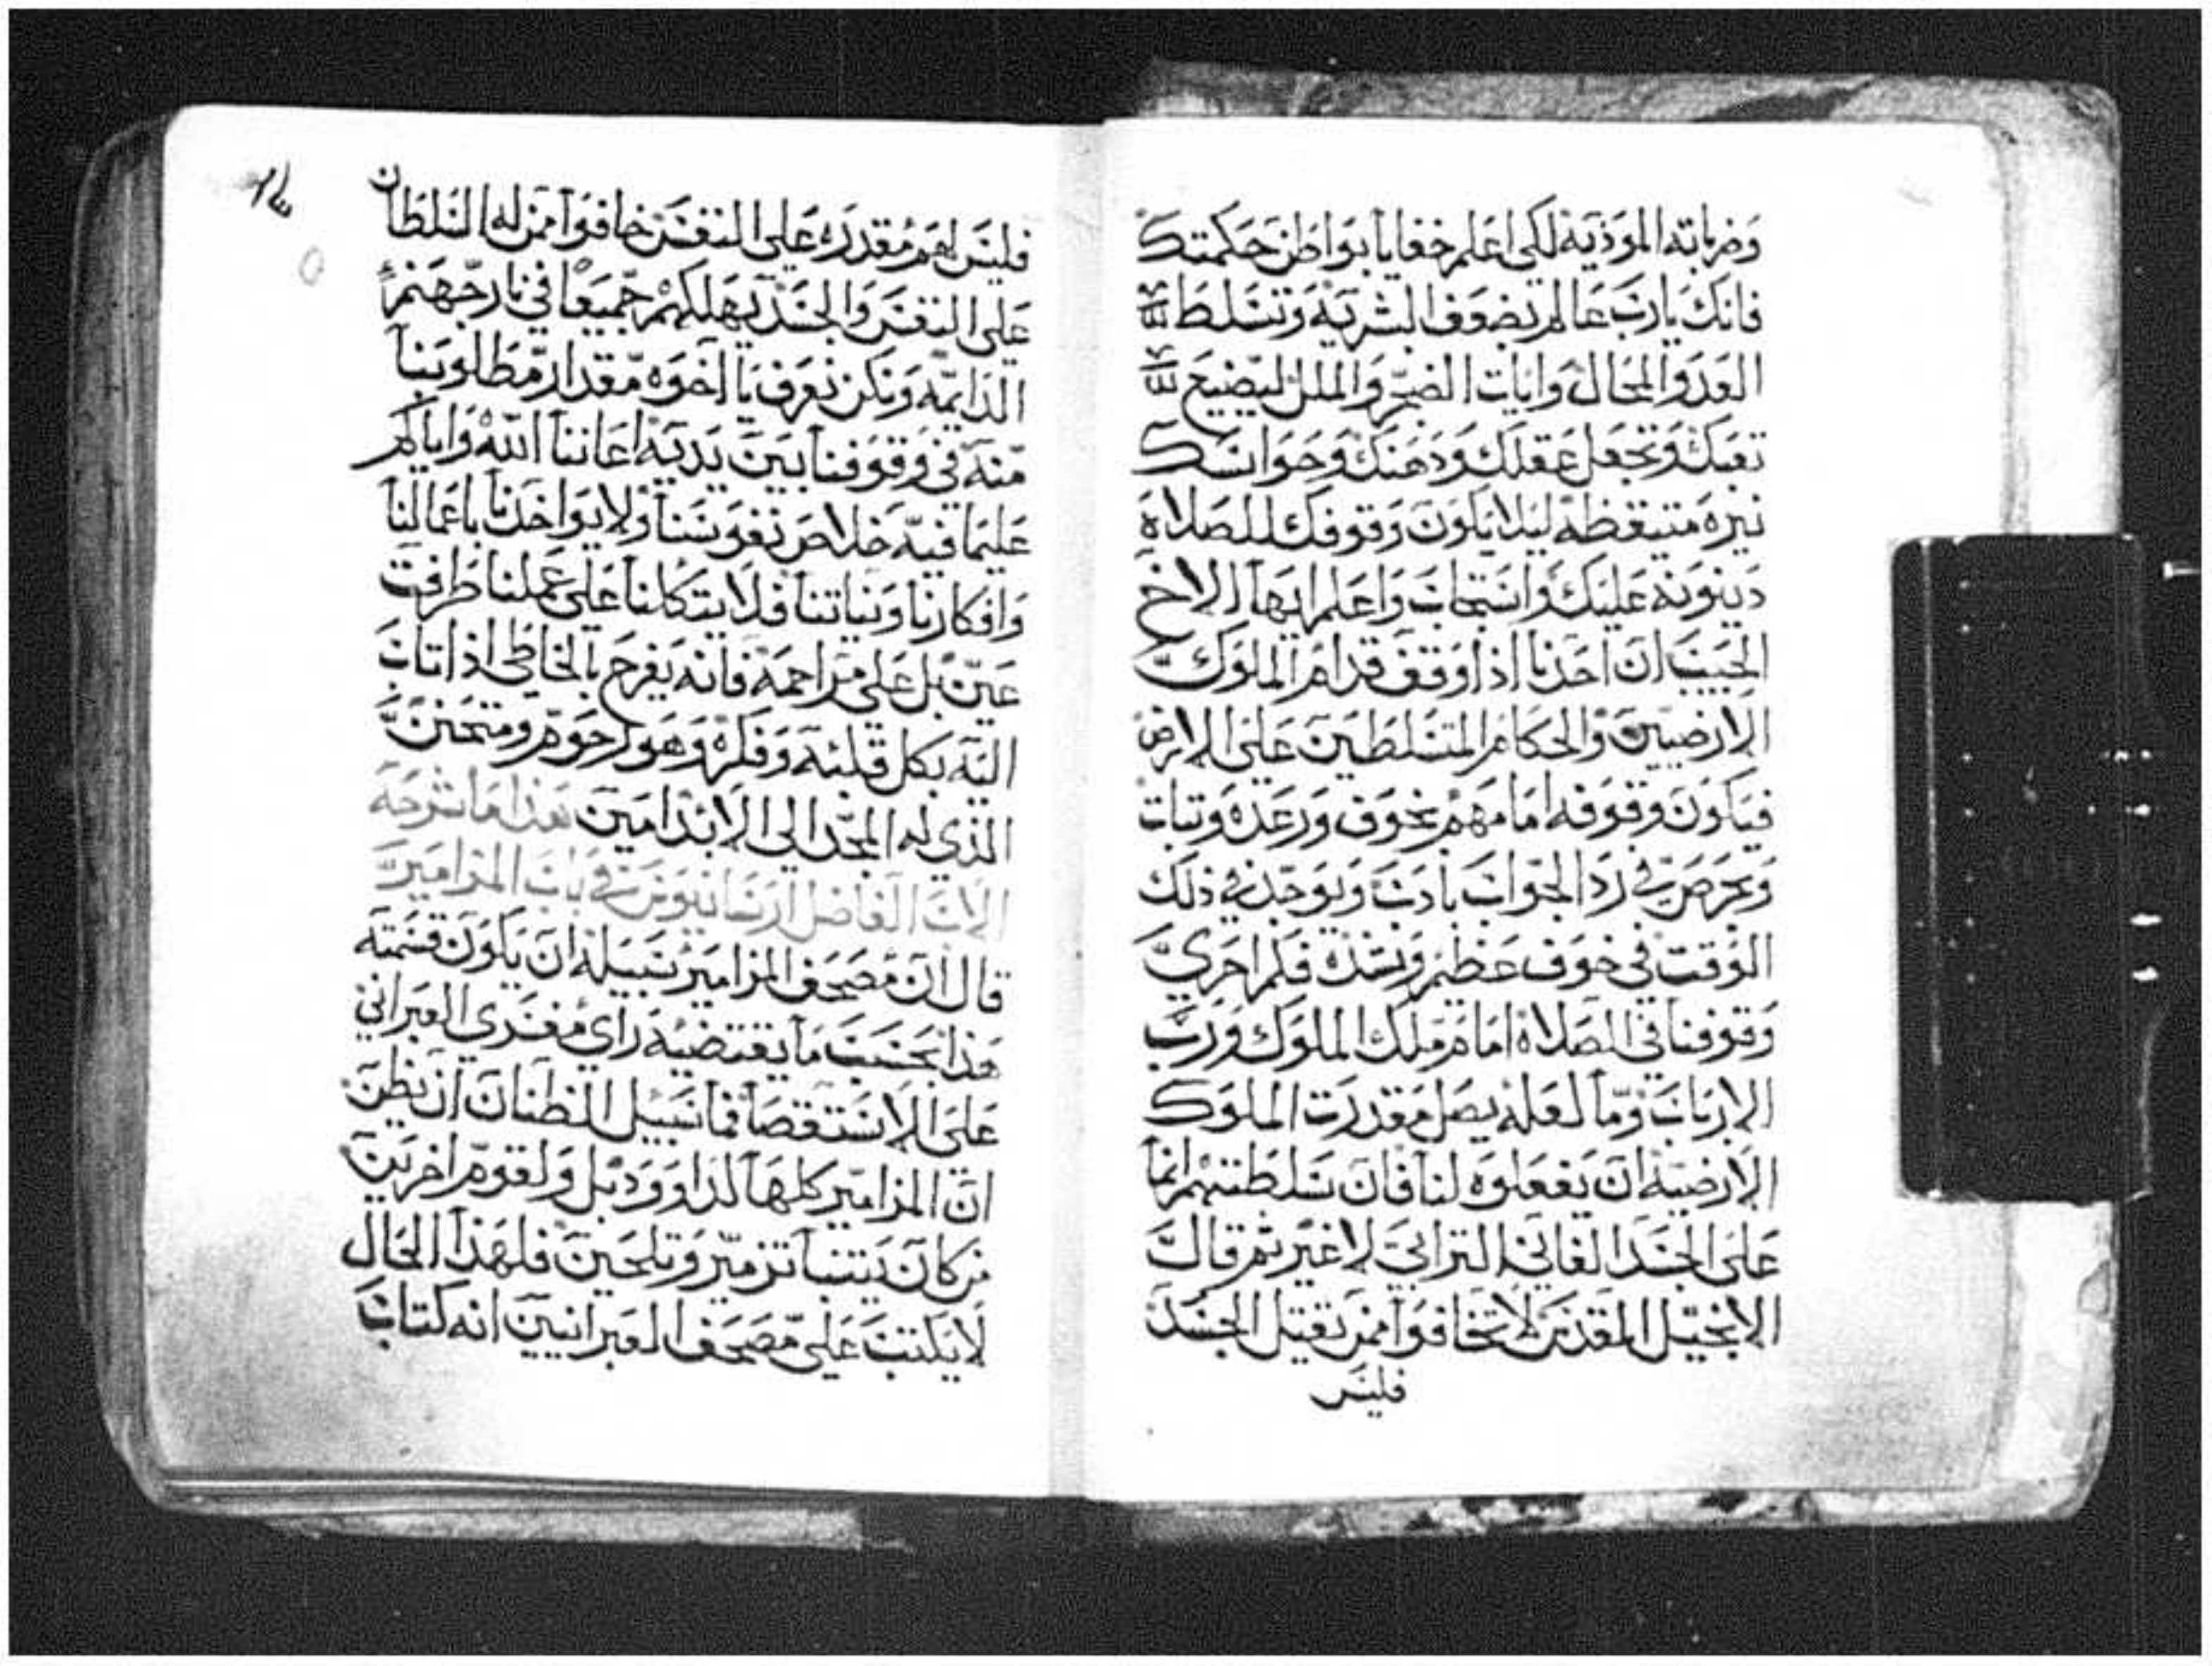 وضرباته الموذية لكي اعلم خفايا بواطن حكمتك
فانك يارب عالم بضعف البشرية وتسلط
العدو المحال وايات الضجر والملل ليضيع
تعبك وتجعل عقلك وذهنك وحواسك
نيره متيقظه ليلا يكون وقوفك للصلاة
دينونه عليك واستجاب واعلم ايها الاخ
الحبيب ان احدنا اذا وقف قدام الملوك
الارضيين والحكام المتسلطين على الارض
فيكون وقوفه امامهم بخوف ورعده وتبات
ويحرص في رد الجواب بادب ويوجد في ذلك
الوقت في خوف عظيم ونسك فلم احري
وقوفنا في الصلاة امام ملك الملوك ورب
الارباب وما لعله يصل مقدرت الملوك
الارضية ان يفعلوه لنا فان سلطتهم انما
على الجسد الفاني الترابي لا غير ثم قال
الانجيل المقدس لا تخافوا ممن يقتل الجسد
فليس
١٣
فليس لهم مقدره على النفس خافوا ممن له السلطان
على النفس والجسد يهلكهم جميعا في نار جهنم
الدايمه ونكن نعرف يا اخوه مقدار مطلوبنا
منه في وقوفنا بين يديه اعاننا الله واياكم
علي ما فيه خلاص نفوسنا ولا يواخدنا باعمالنا
وافكارنا ونياتنا فلا يتكلنا على عملنا طرافت
عين بل على مراحمه فانه يفرح بالخاطي اذا تاب
اليه بكل قلبه وفكره وهو رحوم ومتحنن
الذي له المجد الى الابد امين هذا ما شرحه
الاب الفاضل ارسانيوس في باب المزامير
قال ان مصحف المزامير سبيله ان يكون قسمته
هذا بحسب ما يقتضيه راي مفسري العبراني
على الاستقصا فما سبيل الظنان ان يظن
ان المزامير كلها لداوود بل ولقوم اخرين
من كان يتنبا تزمير وتلحين فلهذا الحال
لا يكتب على مصحف العبرانيين انه كتاب